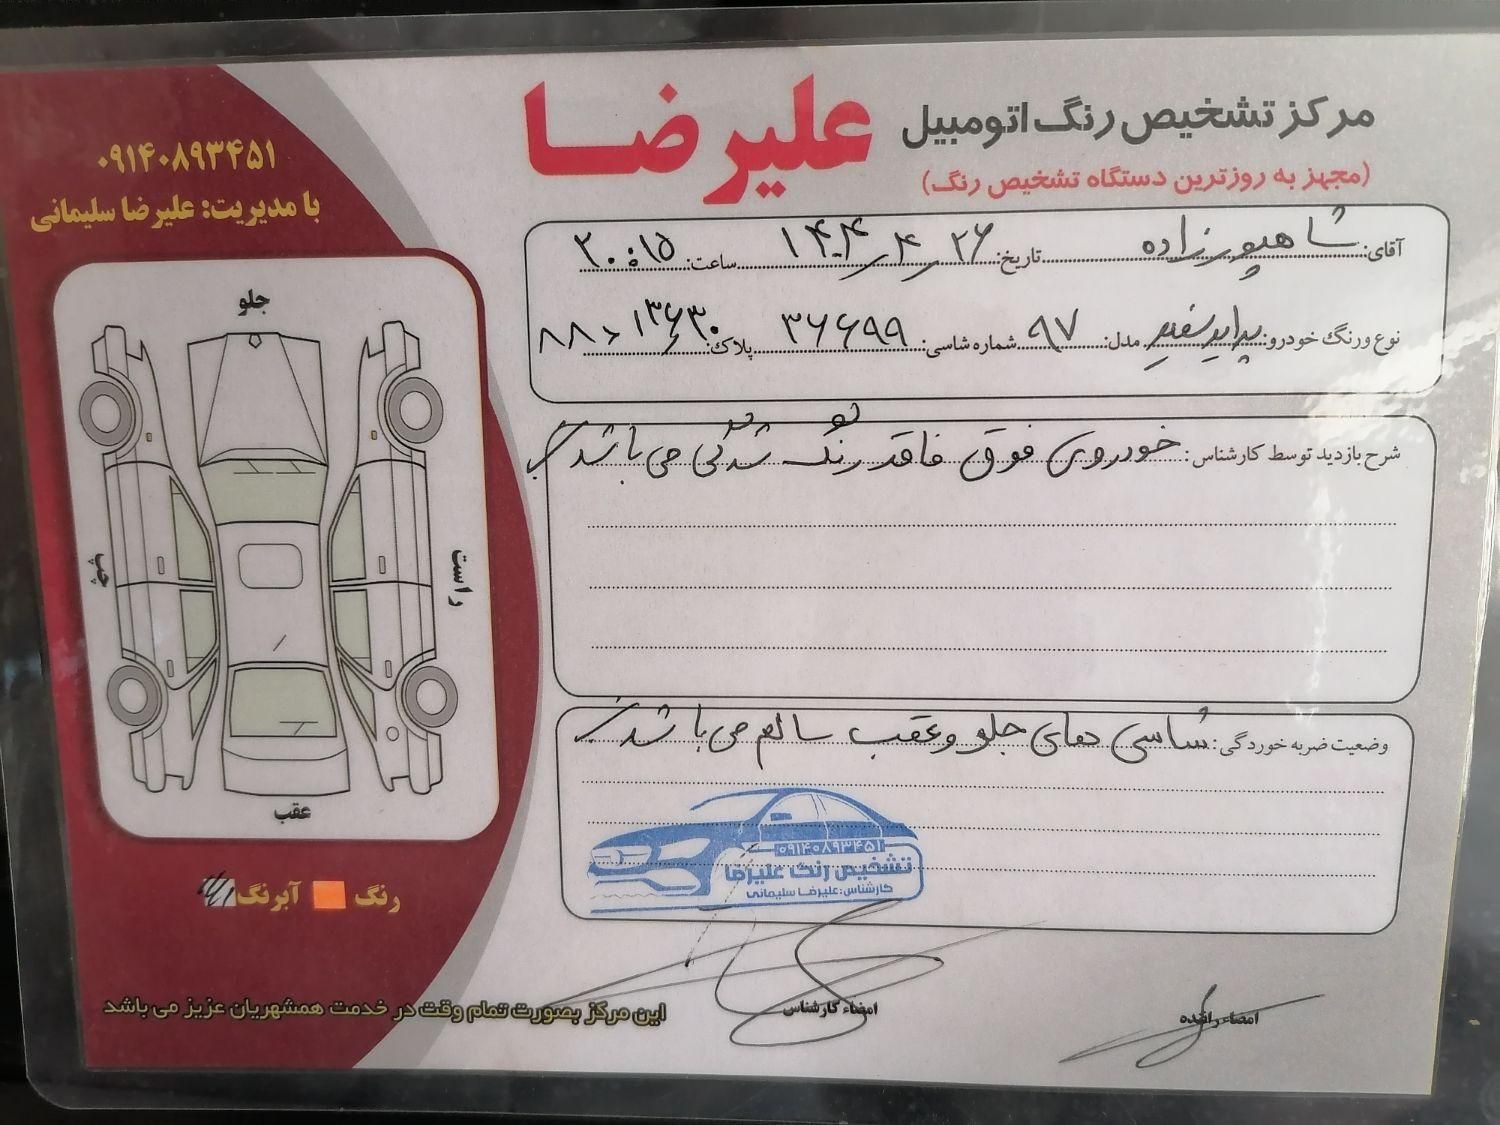 مرکز تشخیص رنگ اتومبیل علیرضا
(مجهز به روزترین دستگاه تشخیص رنگ)
۰۹۱۴۰۸۹۳۴۵۱
با مدیریت: علیرضا سلیمانی
آقای: شاهپورزاده تاریخ: ۱۴۰۴/۴/۲۶ ساعت: ۲۰:۱۵
نوع ورنگ خودرو: پراید سفید مدل: ۹۷ شماره شاسی: ۳۶۶۹۹ پلاک:
شرح بازدید توسط کارشناس: خودروی فوق فاقد رنگ شدگی می باشد
وضعیت ضربه خوردگی: شاسی های جلو و عقب سالم می باشد
جلو
چپ
راست
عقب
رنگ آبرنگ
۰۹۱۴۰۸۹۳۴۵۱
تشخیص رنگ علیرضا
کارشناس: علیرضا سلیمانی
امضاء راننده
امضاء کارشناس
این مرکز بصورت تمام وقت در خدمت همشهریان عزیز می باشد